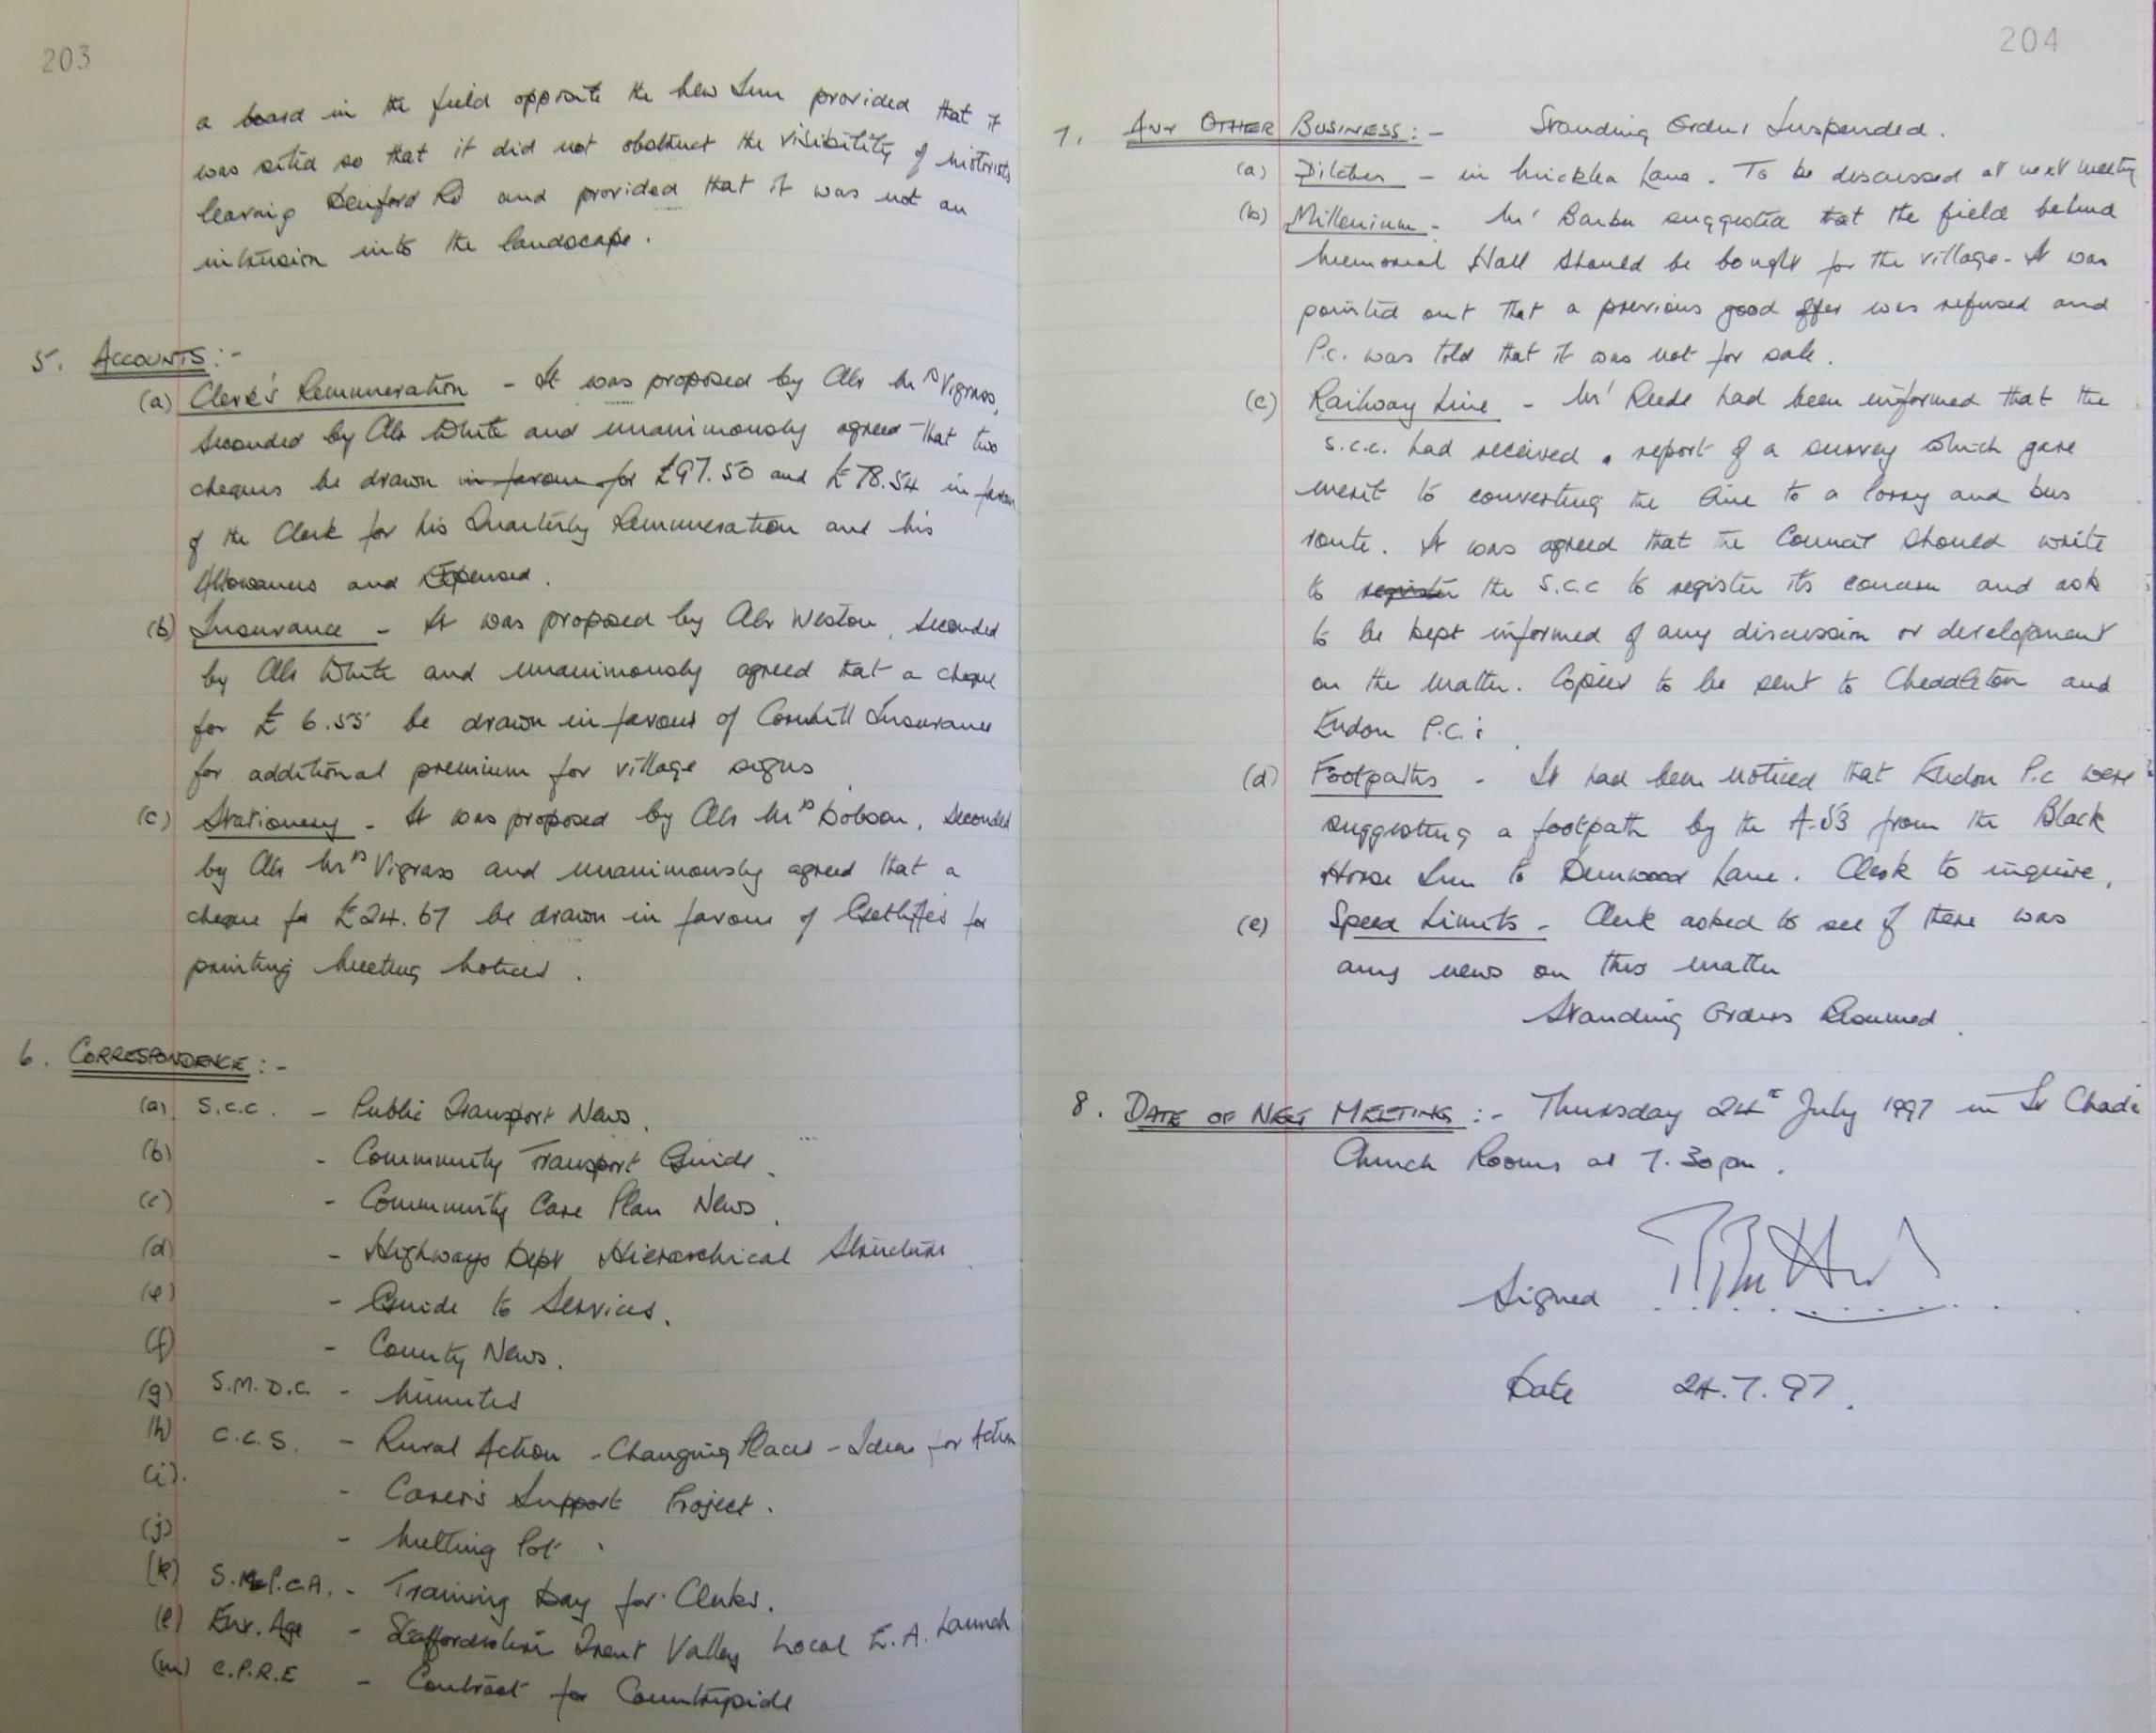 203
a board in the field opposite the New Inn provided that it
was sited so that it did not obstruct the visibility of motorists
leaving Denford Rd and provided that it was not an
intrusion into the landscape.
5. ACCOUNTS:-
(a) Clerk's Remuneration - It was proposed by Clr Mrs Vigrass,
seconded by Clr White and unanimously agreed that two
cheques be drawn in favour for £97.50 and £78.54 in favour
of the Clerk for his Quarterly Remuneration and his
Allowances and Expenses.
(b) Insurance - It was proposed by Clr Weston, seconded
by Clr White and unanimously agreed that a cheque
for £6.55 be drawn in favour of Cornhill Insurance
for additional premium for village signs
(c) Stationery - It was proposed by Clr Mrs Dobson, seconded
by Clr Mrs Vigrass and unanimously agreed that a
cheque for £24.67 be drawn in favour of for
printing Meeting Notices.
6. CORRESPONDENCE:-
(a) S.C.C. - Public Transport News.
(b) - Community Transport Guide.
(c) - Community Care Plan News.
(d) - Highways Dept Hierarchical Structure
(e) - Guide to Services.
(f) - County News.
(g) S.M.D.C. - Minutes
(h) C.C.S. - Rural Action - Changing Places - Ideas for Action
(i). - Carer's Support Project.
(j) - Melting Pot.
(k) S.P.C.A. - Training Day for Clerks.
(l) Env. Age - Staffordshire Trent Valley Local E.A. Launch
(m) C.P.R.E - Contract for Countryside
204
7. ANY OTHER BUSINESS:- Standing Orders Suspended.
(a) Ditches - in Micklea Lane. To be discussed at next meeting
(b) Millenium - Mr Barber suggested that the field behind
Memorial Hall should be bought for the village - It was
pointed out that a previous good offer was refused and
P.C. was told that it was not for sale.
(c) Railway Line - Mr Reede had been informed that the
S.C.C. had received a report of a survey which gave
merit to converting the line to a lorry and bus
route. It was agreed that the Council should write
to register the S.C.C to register its concern and ask
to be kept informed of any discussion or development
on the matter. Copies to be sent to Cheddleton and
Endon P.C.s
(d) Footpaths - It had been noticed that Endon P.C were
suggesting a footpath by the A-53 from the Black
Horse Inn to Dunwood Lane. Clerk to inquire.
(e) Speed Limits - Clerk asked to see if there was
any news on this matter
Standing Orders Resumed.
8. DATE OF NEXT MEETING:- Thursday 24th July 1997 in St Chad's
Church Rooms at 7.30pm.
Signed
Date 24.7.97.